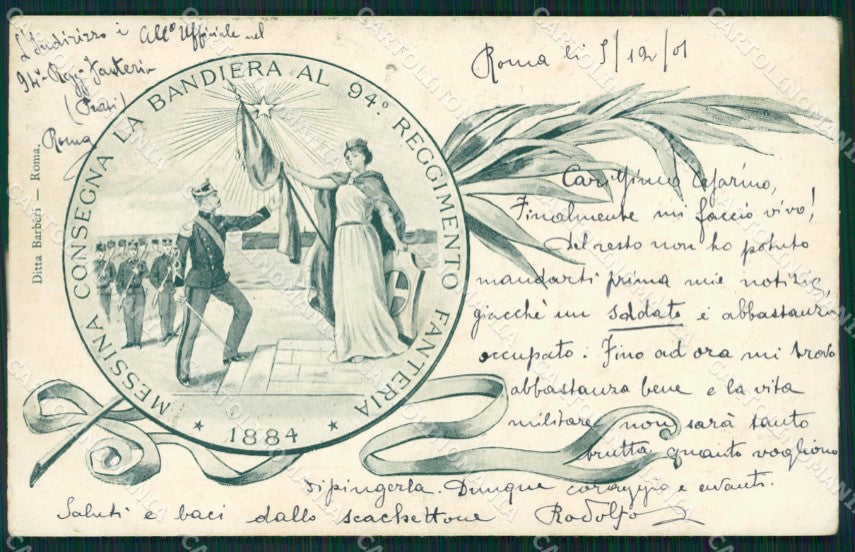 L'Indirizzo è All° Ufficiale nel
94° Regg. Fanteria
(Prati)
Roma
Roma li 5/12/01
MESSINA CONSEGNA LA BANDIERA AL 94° REGGIMENTO FANTERIA
★ 1884 ★
Ditta Barberi — Roma.
Carissimo Cesarino,
Finalmente mi faccio vivo!
Del resto non ho potuto
mandarti prima mie notizie,
giacchè un soldato è abbastanza
occupato. Fino ad ora mi trovo
abbastanza bene e la vita
militare non sarà tanto
brutta quanto vogliono
dipingerla. Dunque coraggio e avanti.
Saluti e baci dallo scachettone Rodolfo
CARTOLINOMANIA